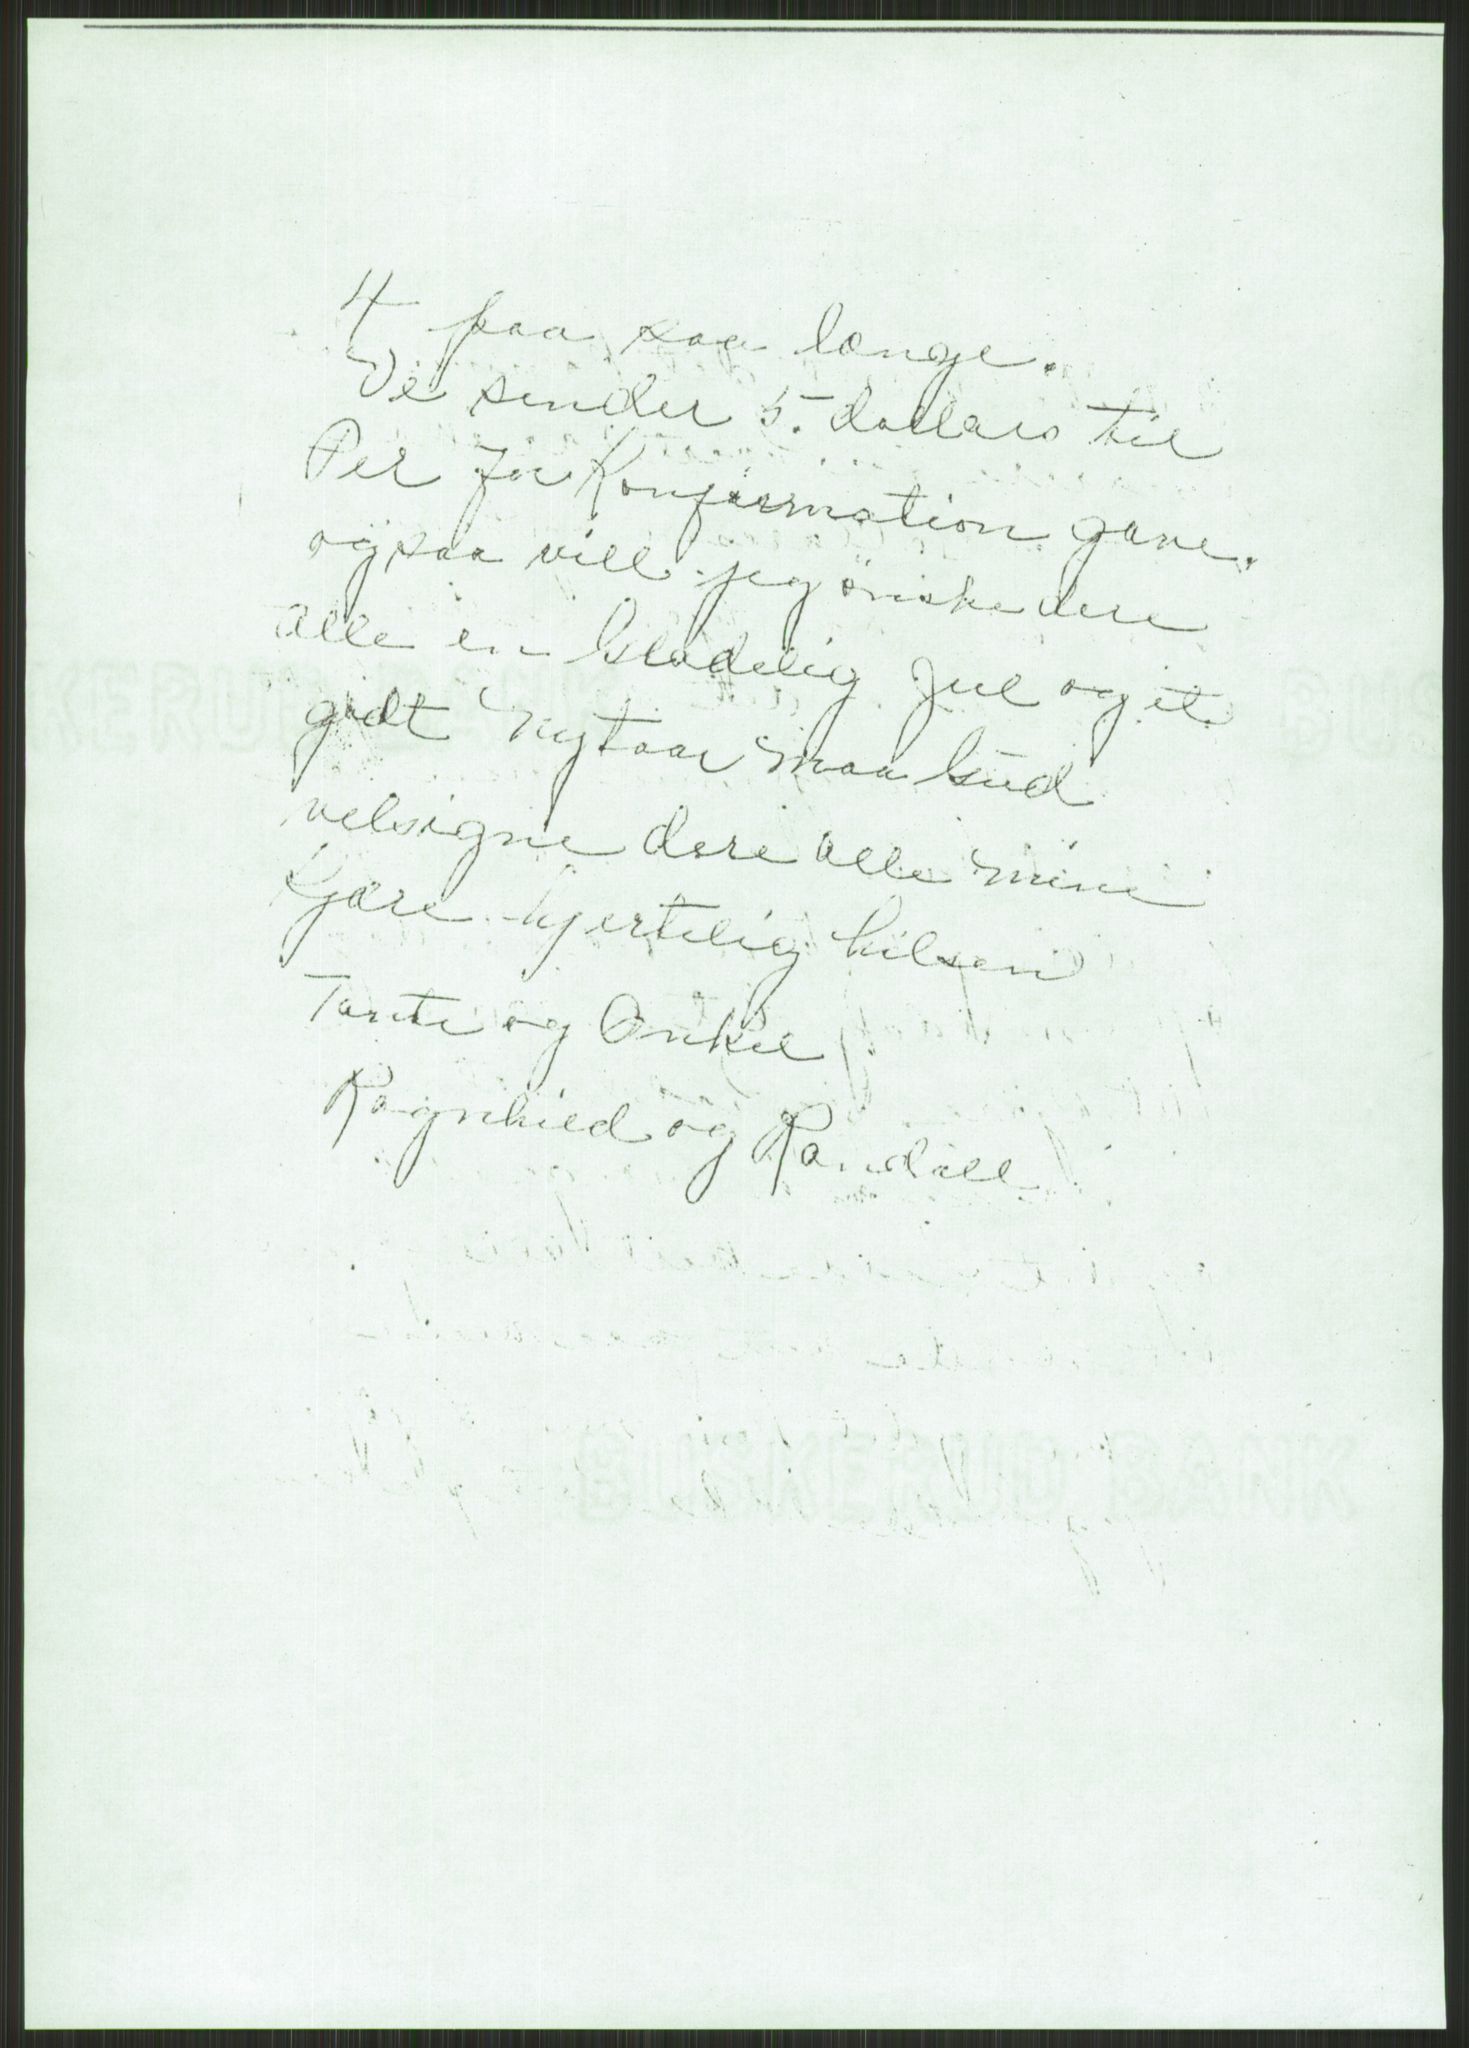 4 paa saa længe.
Vi sender 5. dollars til
Per for Konfirmation gave.
ogsaa vill jeg önske dere
alle en Gladelig Jul og et
godt Nytaar maa Gud
velsigne dere alle mine
Kjære hjertelig hilsen
Tante og Onkel
Ragnhild og Randall
BUSKERUD BANK